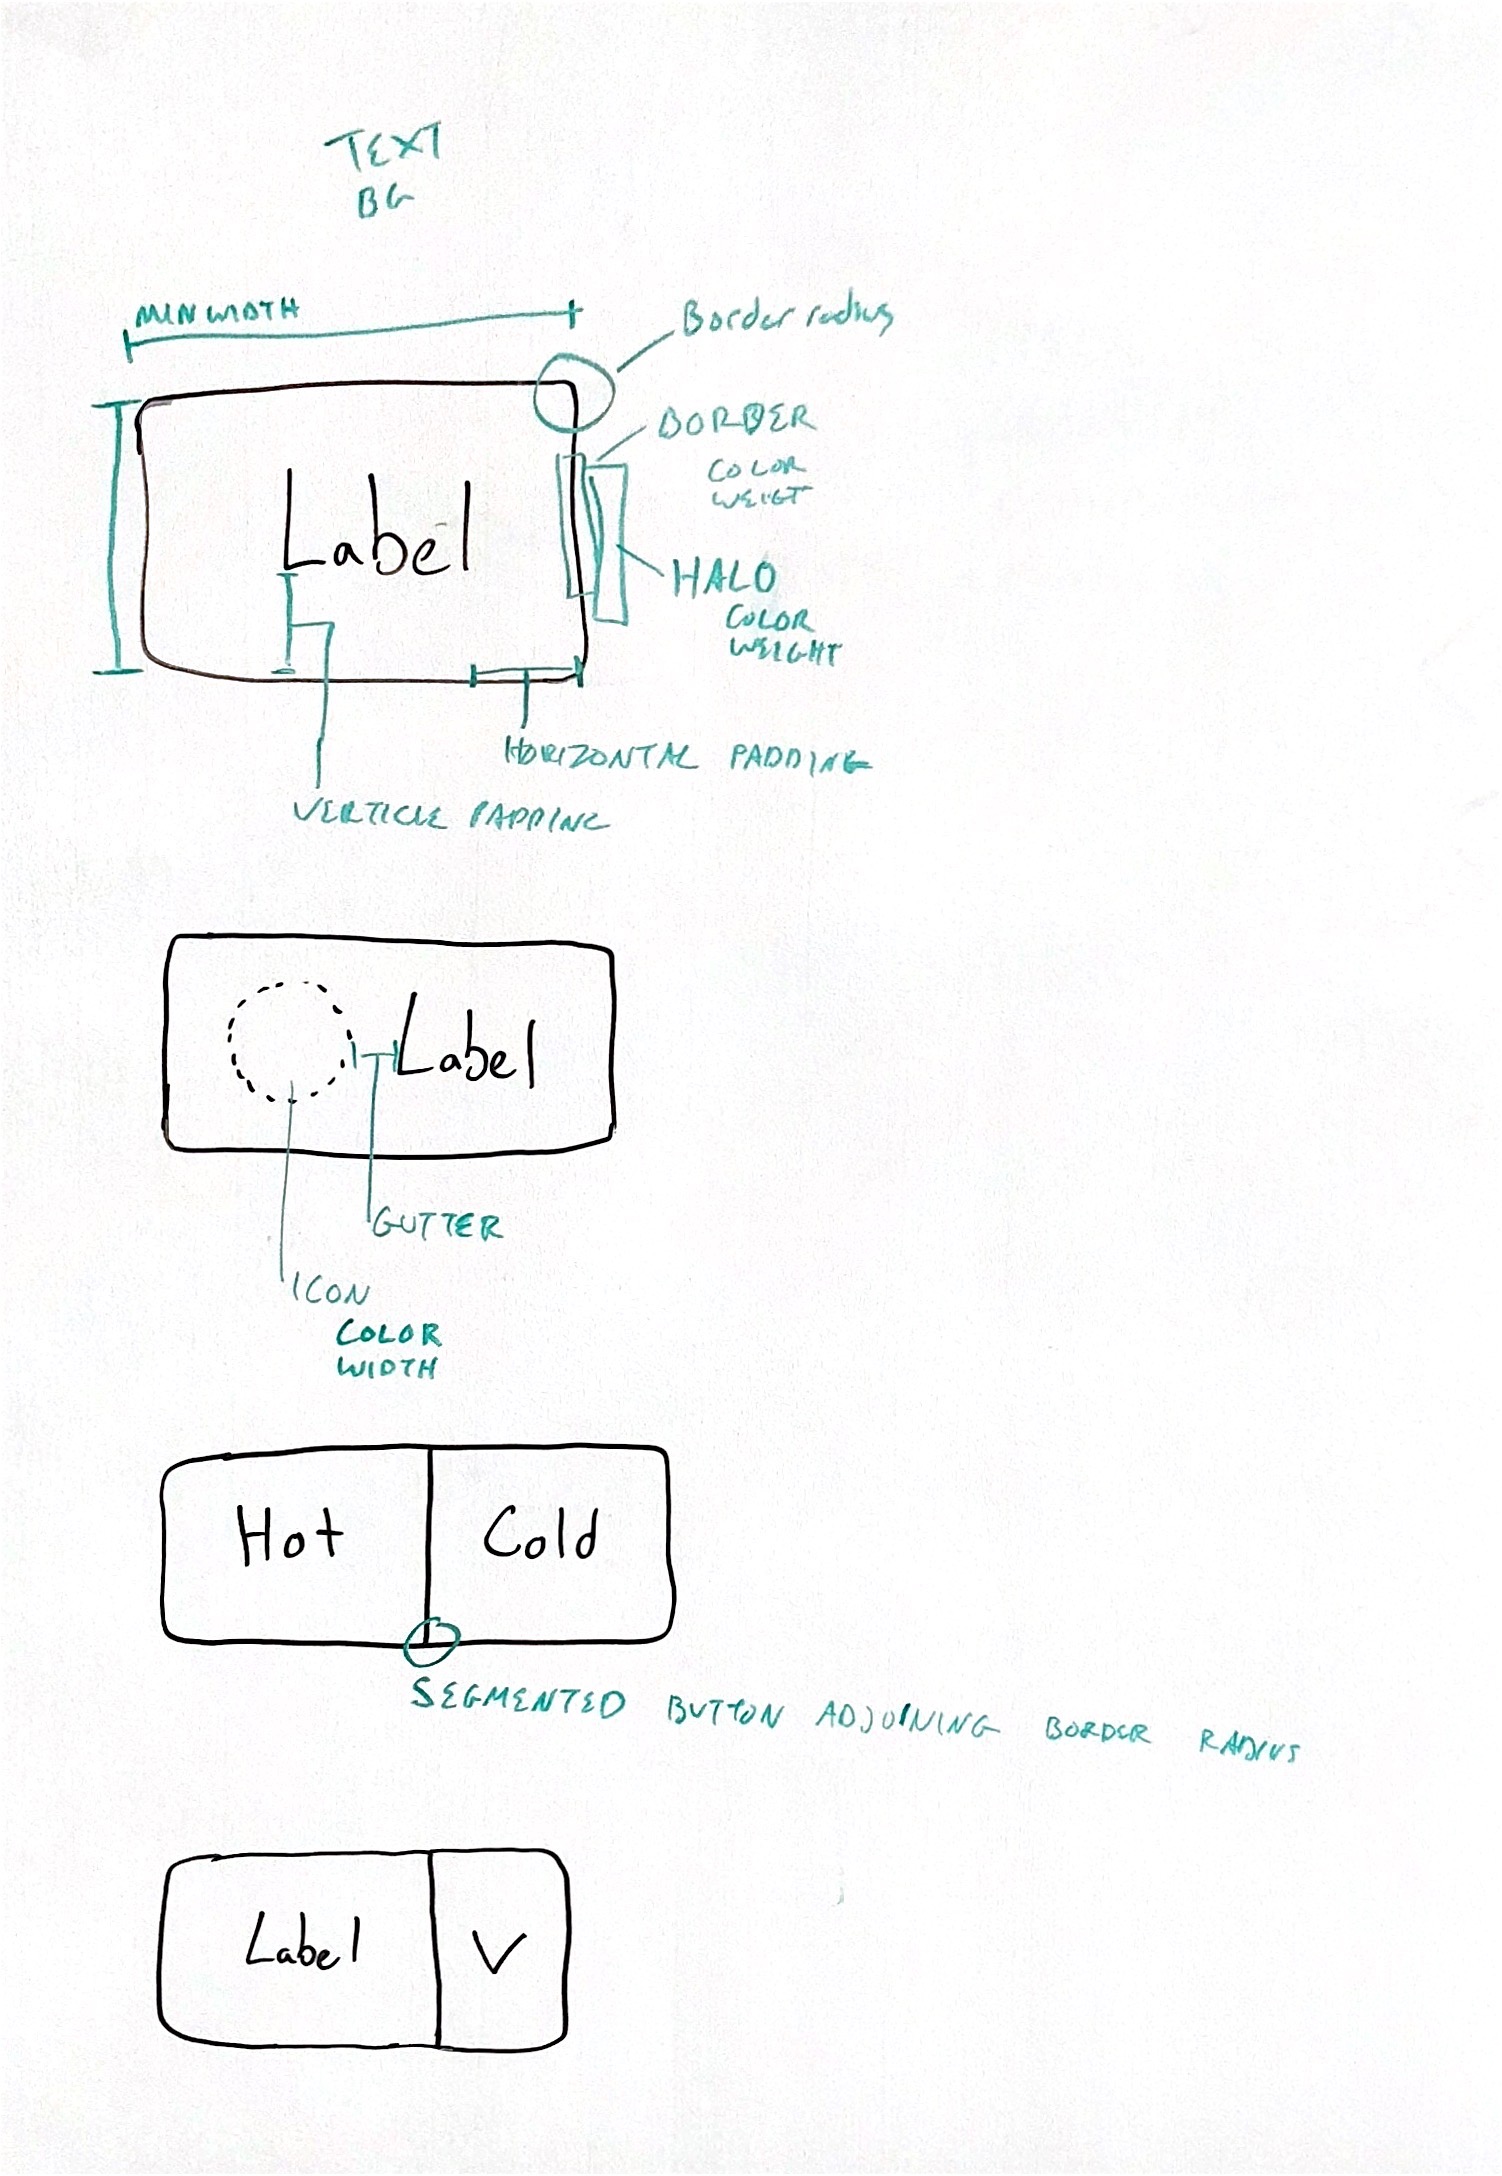 TEXT
BG
MIN WIDTH
Border radius
BORDER
COLOR
WEIGT
Label
HALO
COLOR
WEIGHT
HORIZONTAL PADDING
VERTICLE PADDING
Label
GUTTER
ICON
COLOR
WIDTH
Hot Cold
SEGMENTED BUTTON ADJOINING BORDER RADIUS
Label V